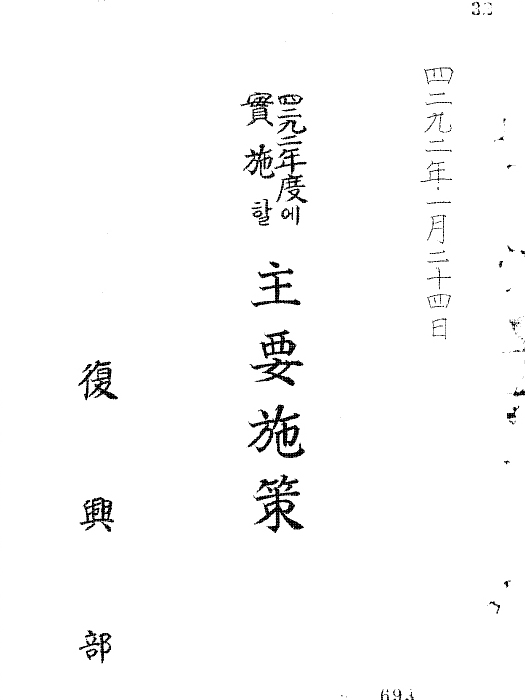 四二九二年·一月二十四日
四二九二年度에
實施할
主要施策
復興部